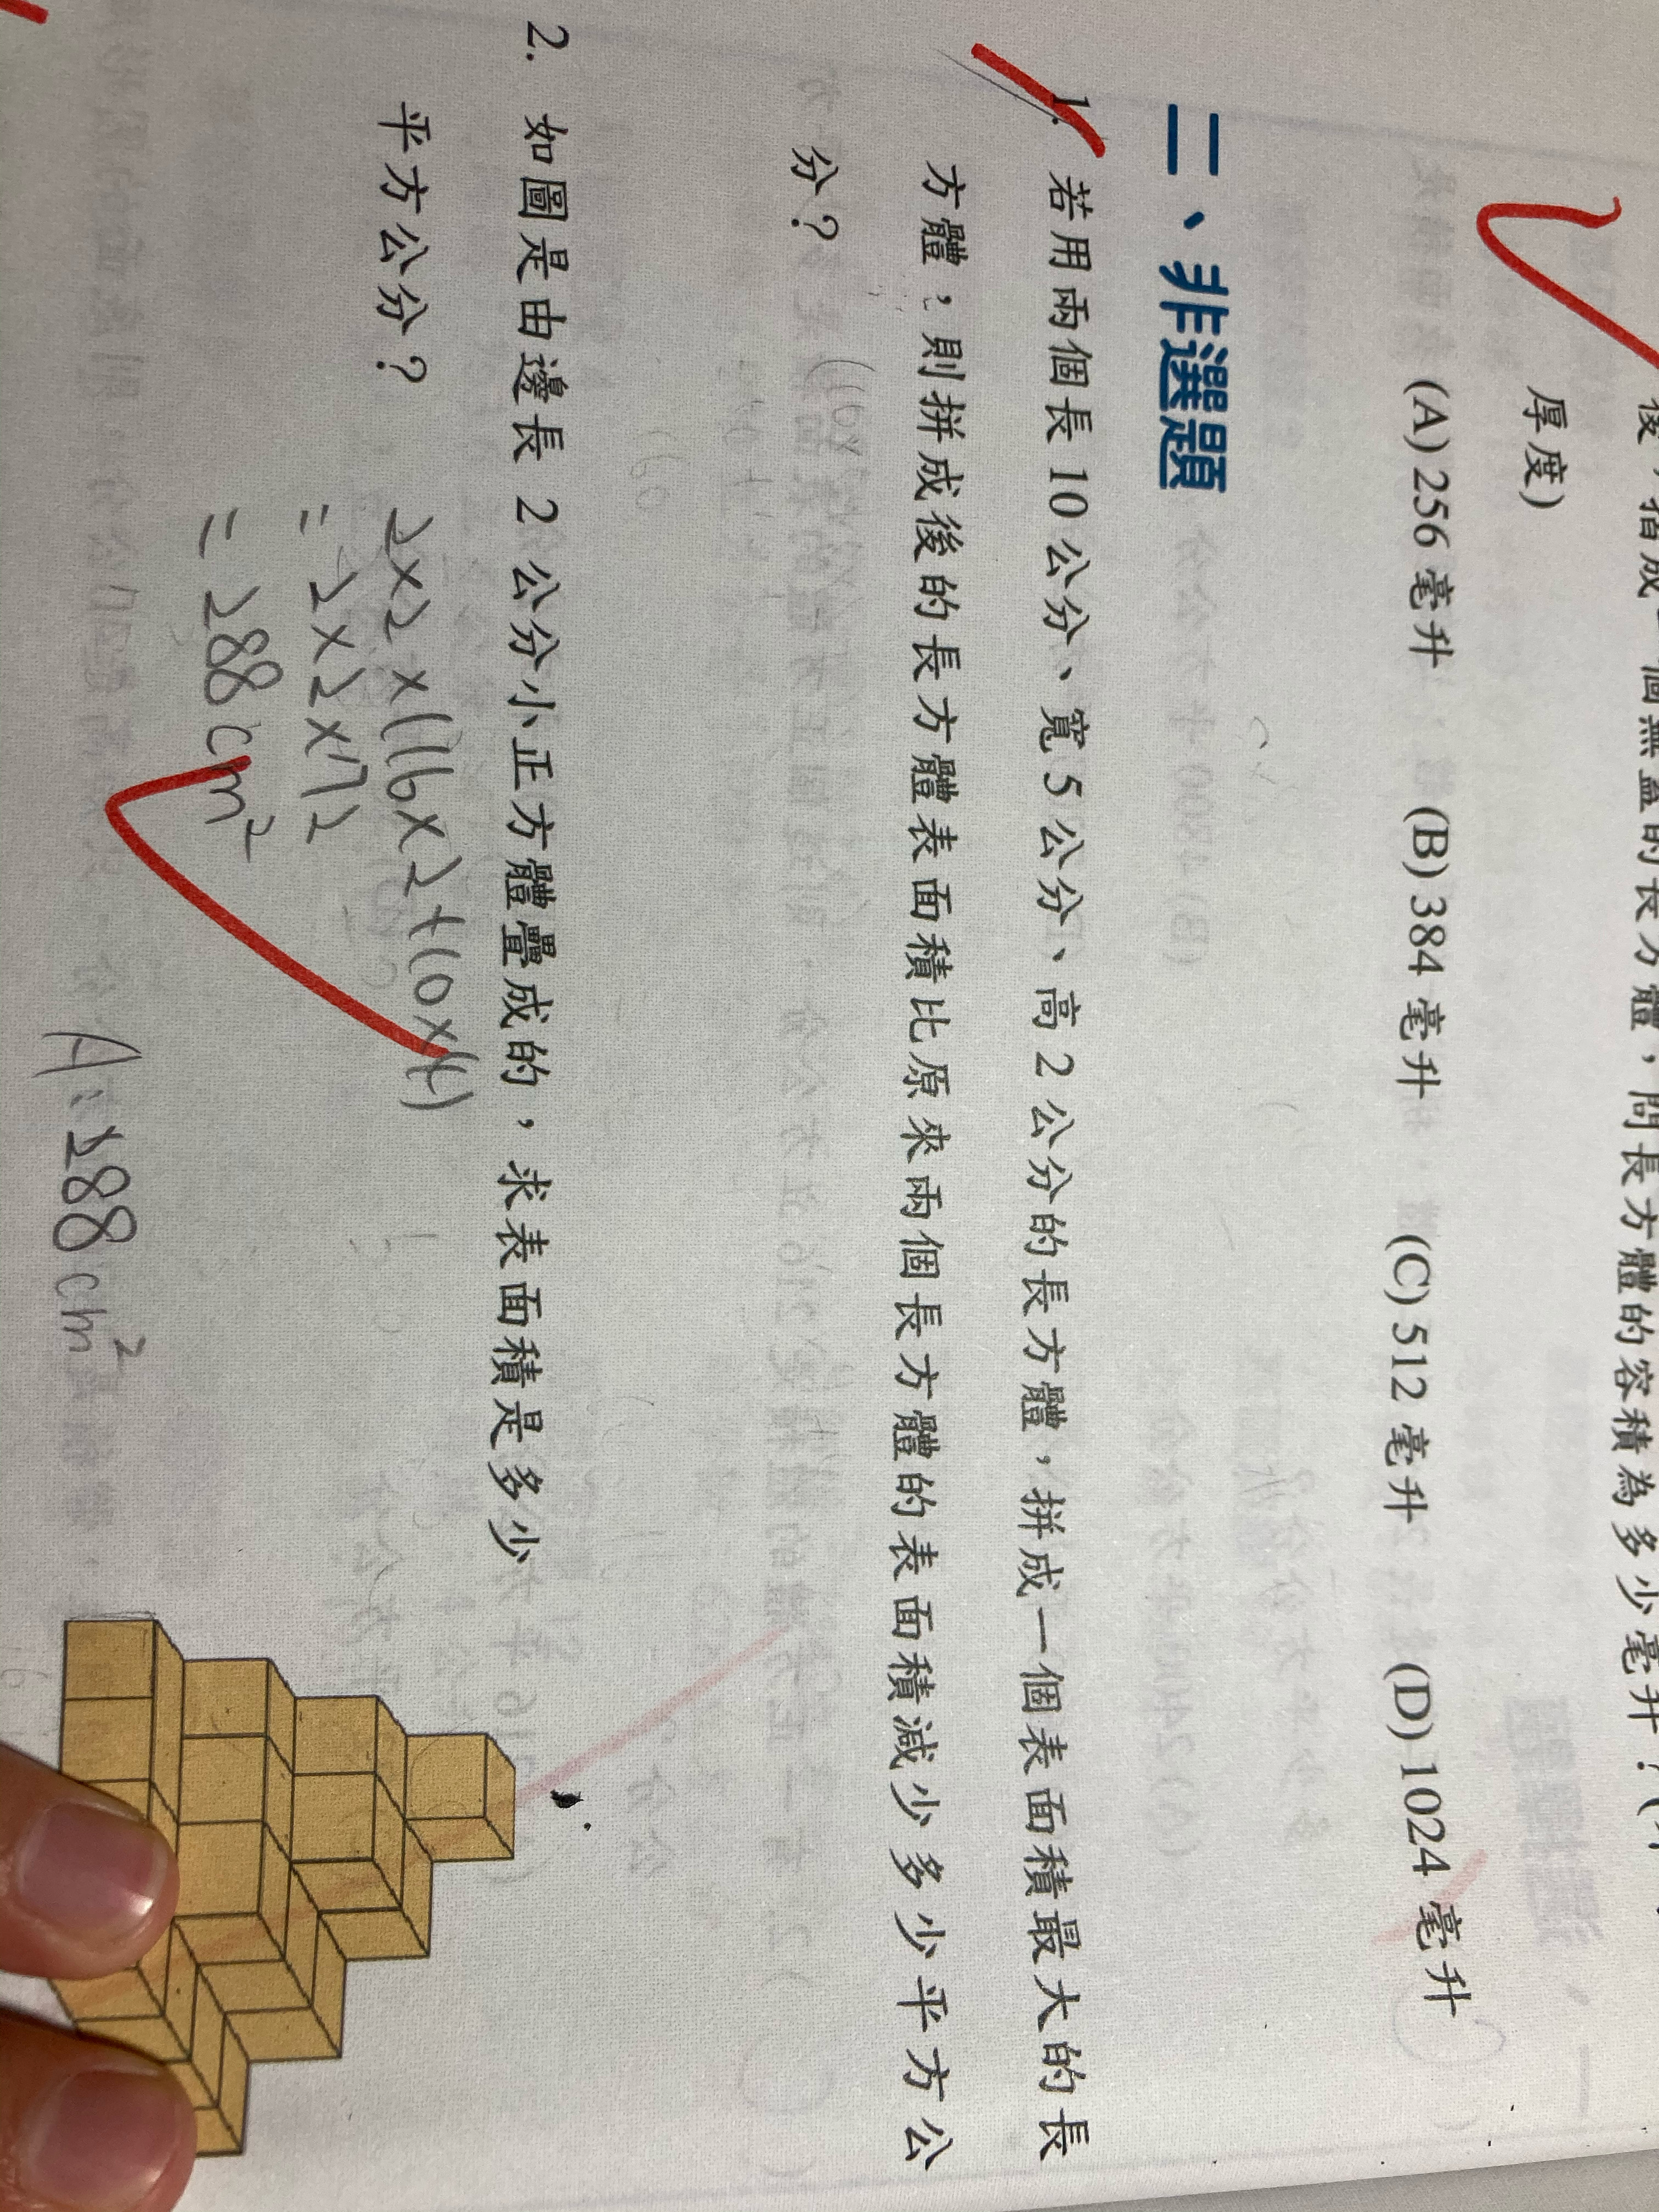 後，摺成一個無蓋的長方體，問長方體的容積為多少毫升？(不
厚度)
(A) 256 毫升 (B) 384 毫升 (C) 512 毫升 (D) 1024 毫升
二、非選題
1. 若用兩個長 10 公分、寬 5 公分、高 2 公分的長方體，拼成一個表面積最大的長
方體，則拼成後的長方體表面積比原來兩個長方體的表面積減少多少平方公
分？
2. 如圖是由邊長 2 公分小正方體疊成的，求表面積是多少
平方公分？
2×2×(16×2+10×4)
=2×2×72
=288cm²
A:288cm²